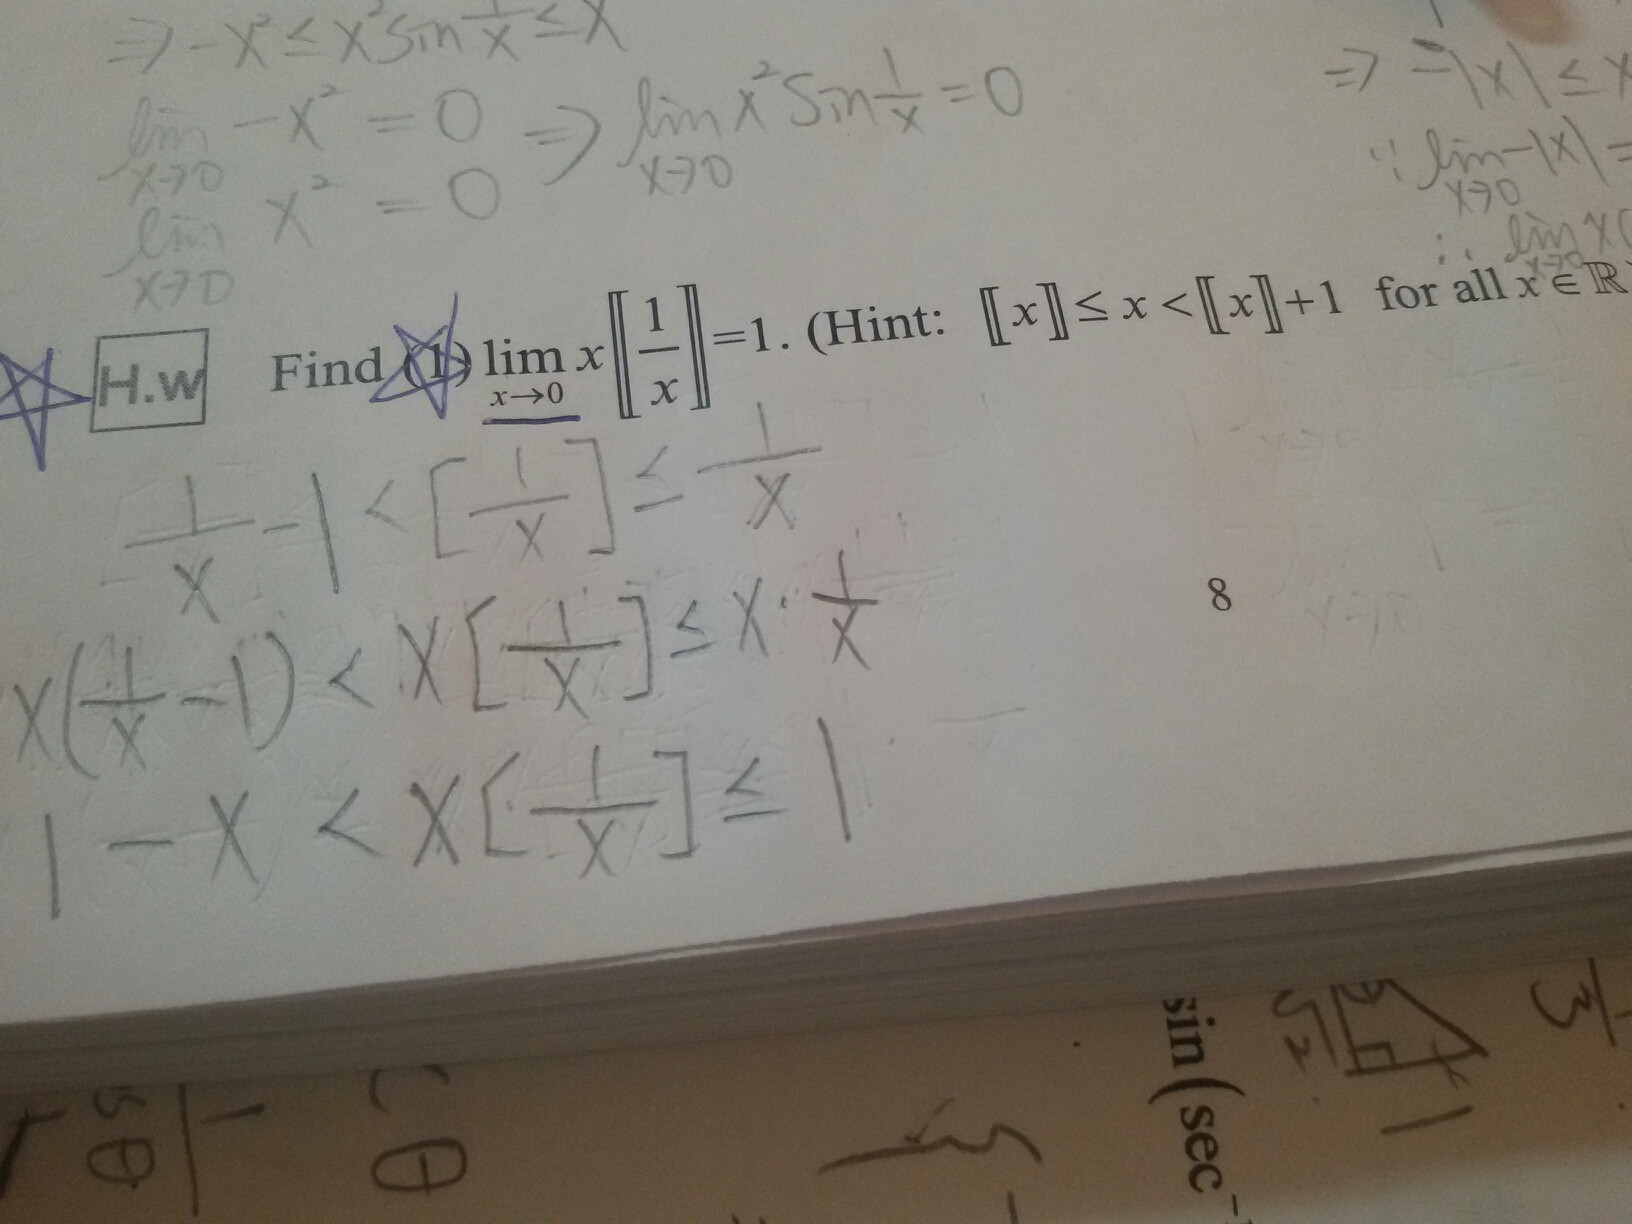 ⇒ -x² ≤ x² sin 1/x ≤ x
lim x→0 -x² = 0 ⇒ lim x→0 x² sin 1/x = 0
lim x→0 x² = 0
⇒ -|x| ≤ x
∵ lim x→0 -|x| =
∴ lim x→0 x(
H.w Find (1) lim x→0 x⟦1/x⟧=1. (Hint: ⟦x⟧ ≤ x < ⟦x⟧+1 for all x ∈ ℝ
1/x - 1 < [1/x] ≤ 1/x
x(1/x - 1) < x[1/x] ≤ x · 1/x
8
1 - x < x[1/x] ≤ 1
sin(sec⁻